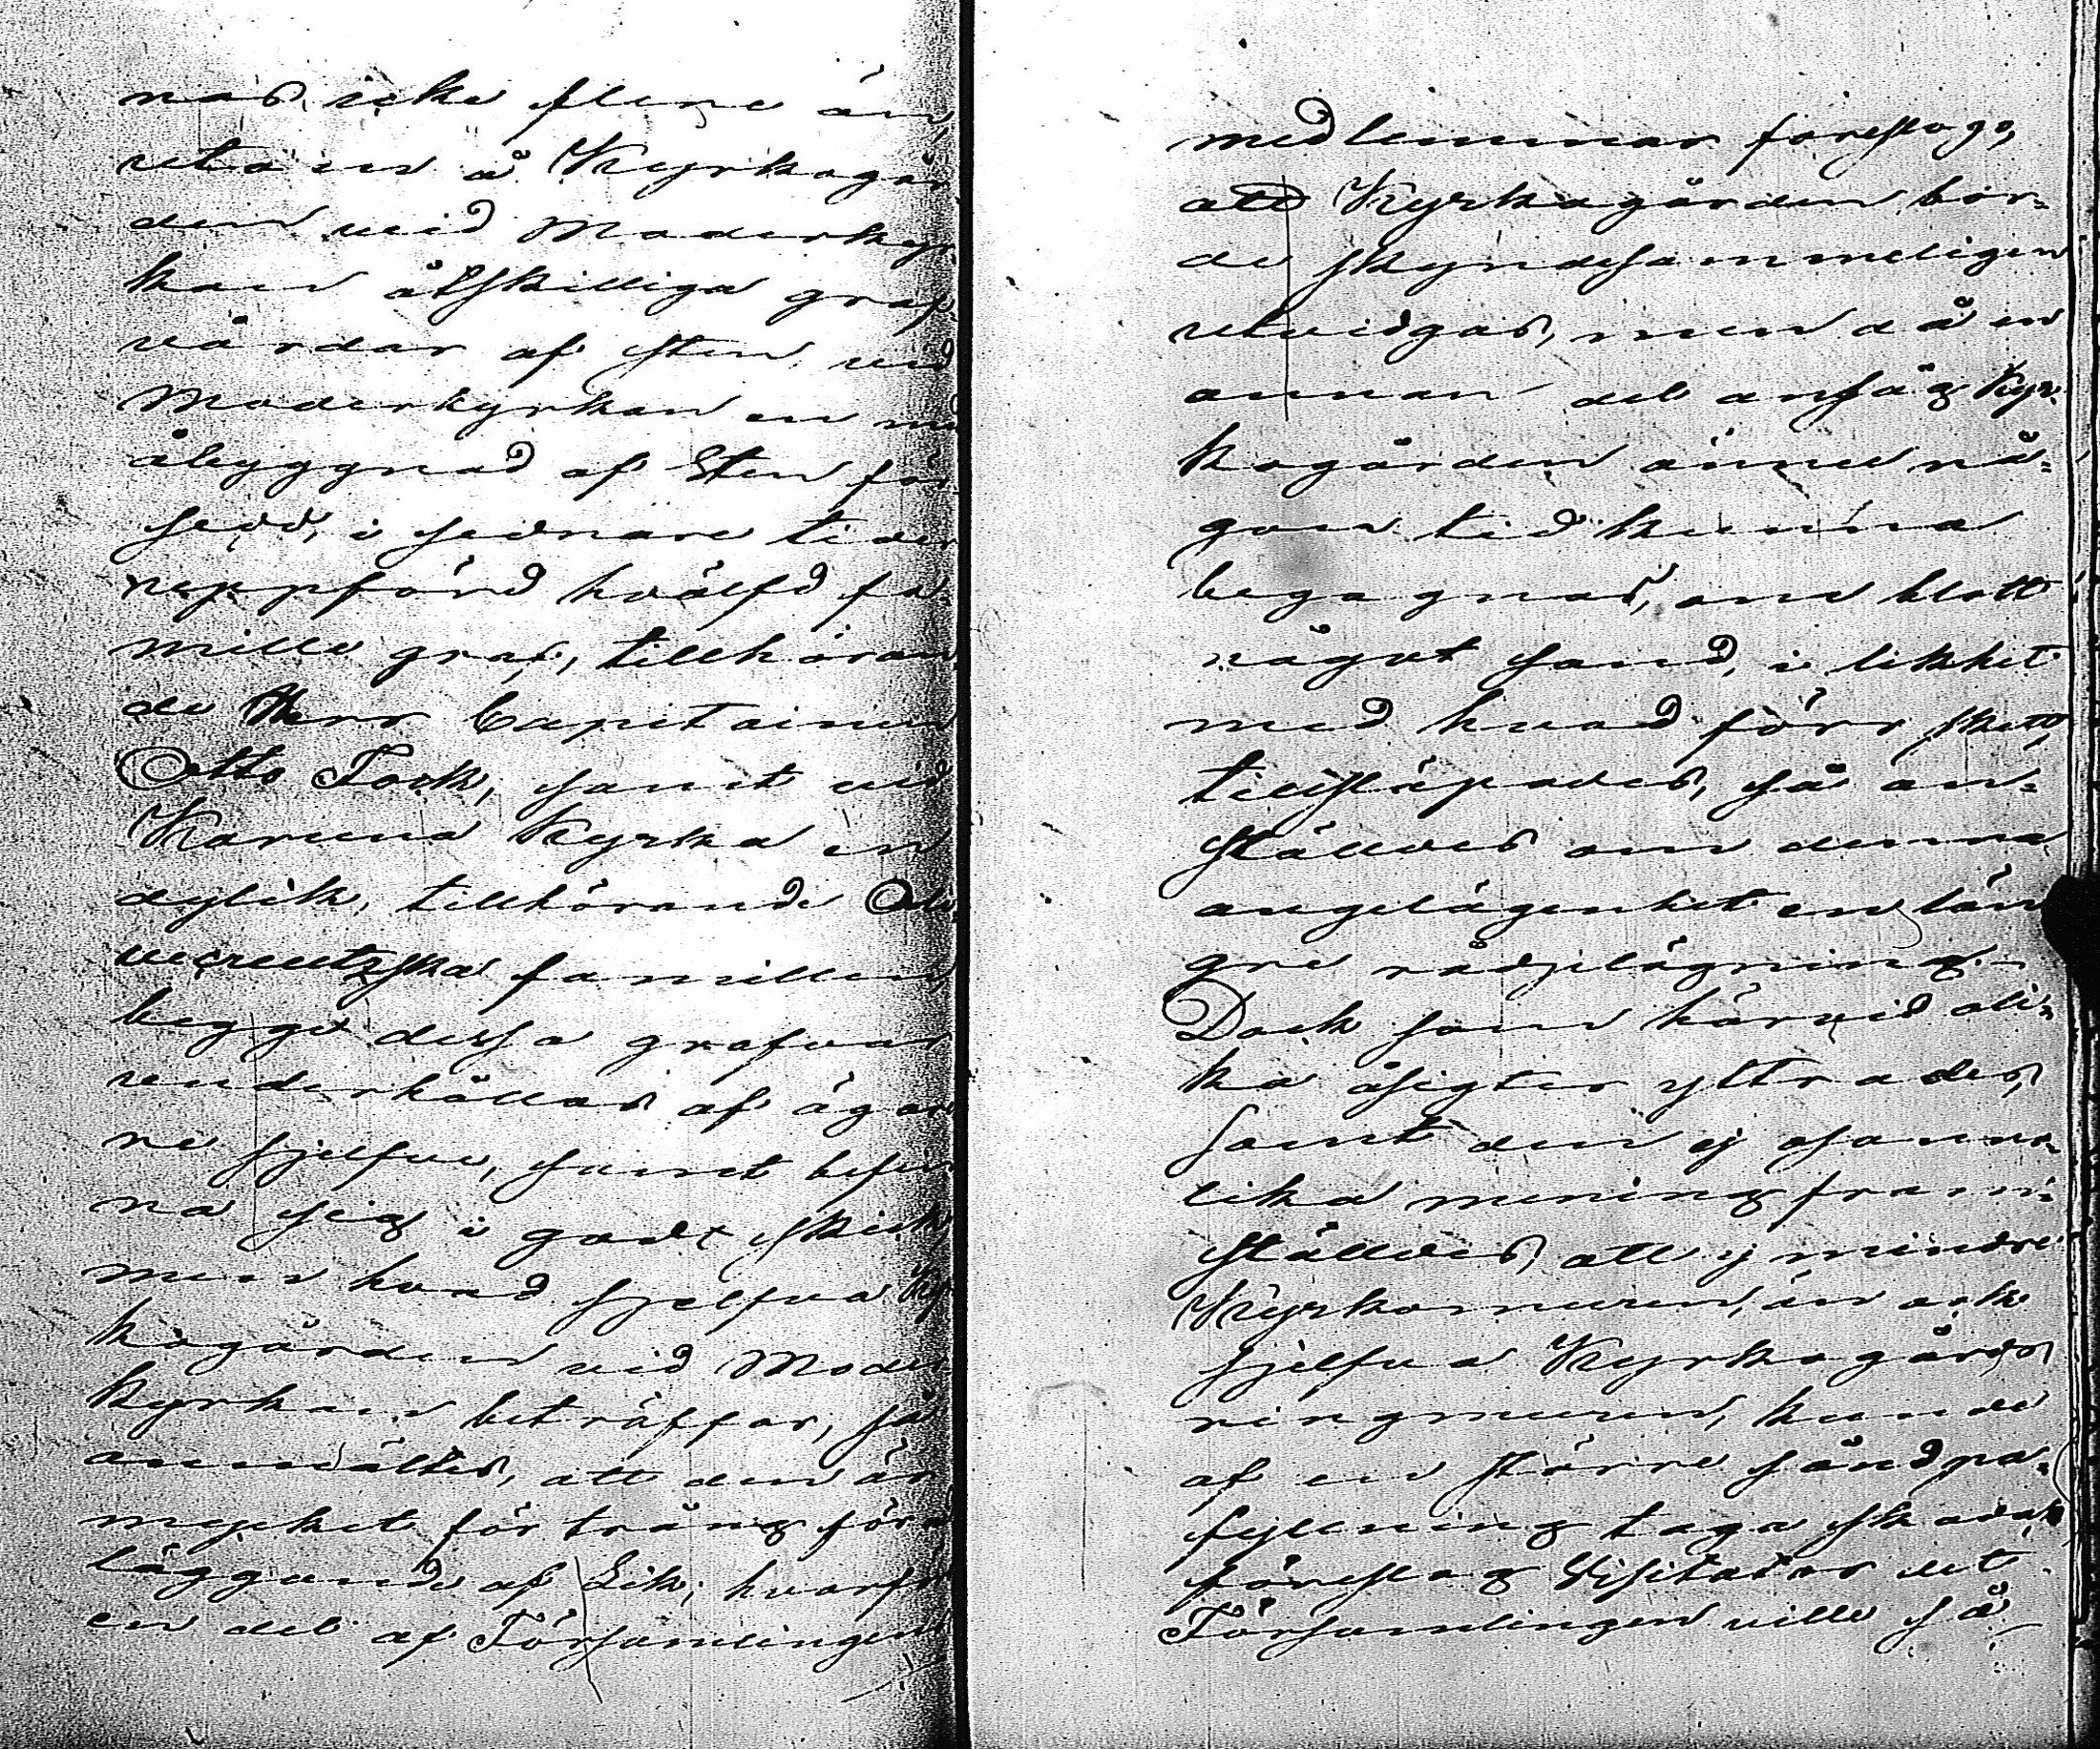 nas icke flere än
utom å Kyrkogår
den vid Moderkyr
kan åtskilliga graf
vårdar af sten, vid
Moderkyrkan en med
åbyggnad af Sten för
sedd, i sednare tider
uppförd hvälfd fa-
mille graf, tillhöran
de Herr Capitainen
Otto Fock, samt vid
Karuna Kyrka en
dylik, tillhörande Oli
vecreutzska familien
begge dessa grafvar
underhållas af ägar
ne sjelfve, samt befin
na sig i godt skick,
men hvad sjelfva Kyr
kogården vid Moder
kyrkan beträffar, så
anmältes, att den är
mycket för trång för
läggande af Lik; hvarför
en del af Församlingens
medlemmar föreslogo,
att Kyrkogården bor-
de skyndesammeligen
utvidgas, men då en
annan del ansåg Kyr-
kogården ännu nå-
gon tid kunna
begagnas, om blott
något sand, i likhet
med hvad förr skett,
tillsläpades, så an-
ställdes om denna
angelägenhet en län
gre rådplägning.
Dock som härvid oli-
ka åsigter yttrades,
samt den ej osanno-
lika mening fram-
ställdes, att ej mindre
Kyrkomuren, än ock
sjelfva Kyrkogårds
ringmuren, kunde
af en större sandpå-
fyllning taga skada,
föreslog Visitator det
Församlingen ville så